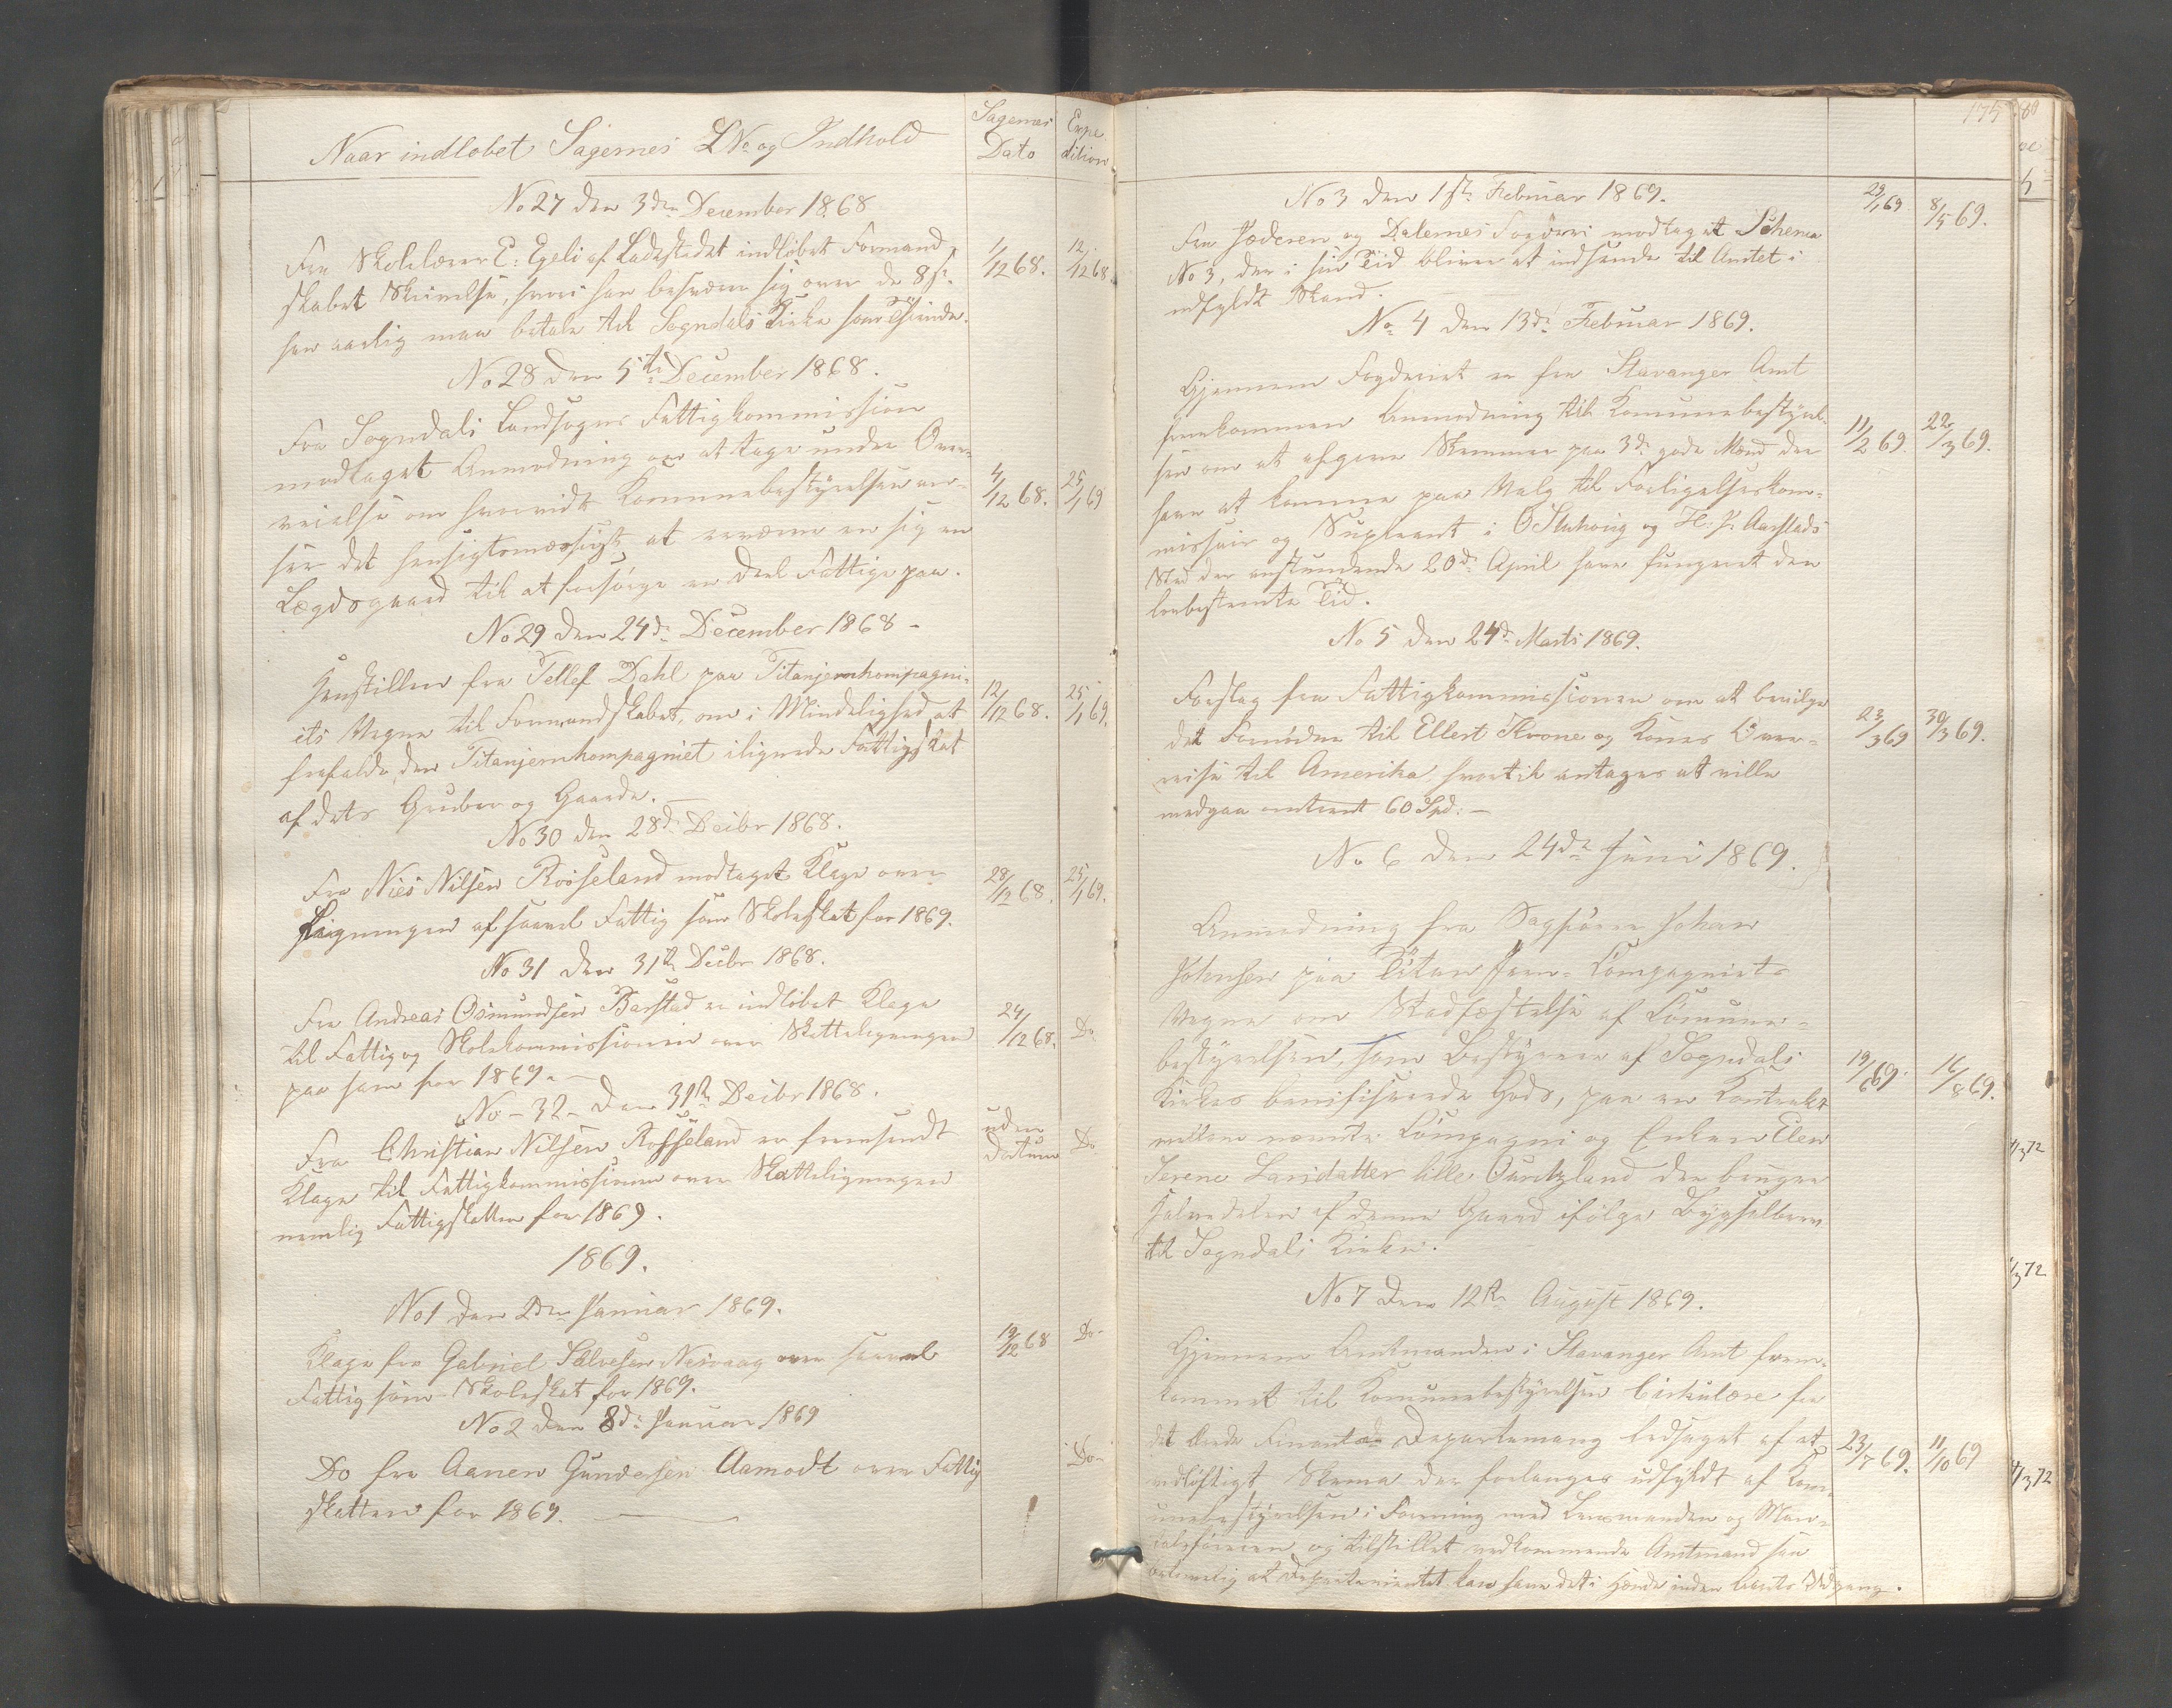 Naar indløbet Sagernes LNo og Indhold
Sagernes Dato
Expedition
No 27 den 3die December 1868
Fra Skolelærer E: Egeli af Ladestedet indløbet Formand-
skabet Skrivelse, hvori han besværer sig over de 8 s.
han aarlig maa betale til Sogndals Kirke som Tiende.
1/12 68.
12/12 68
No 28 den 5te December 1868.
Fra Sogndals Landsogns Fattigkommission
modtaget Anmodning om at tage under Over-
veielse om hvorvidt Kommunebestyrelsen an-
ser det hensigtsmæssigt at erverve en sig en
Lægdsgaard til at forsørge en Deel Fattige paa.
4/12 68.
25/1 69
No 29 den 24de December 1868 -
Henstillen fra Tellef Dahl paa Titanjernkompagni-
ets Vegne til Formandskabet, om i Mindelighed at
frafalde den Titanjernkompagniet ilignede Fattigskat
af dets Gruber og Gaarde. —
12/12 68.
25/1 69.
No 30 den 28de Decbr 1868.
Fra Nils Nilsen Rosseland modtaget Klage over
Ligningen af saavel Fattig som Skoleskat for 1869.
28/12 68.
25/1 69.
No 31 den 31te Decbr 1868.
Fra Andreas Osmundsen Barstad er indløbet Klage
til Fattig og Skolekommissionen over Skatteligningen
paa ham for 1869. —
24/12 68.
Do
No - 32 - den 31te Decbr 1868.
Fra Christian Nilsen Rosseland er fremsendt
Klage til Fattigkommissionen over Skatteligningen
nemlig Fattigskatten for 1869.
uden Datum
Do
1869.
No 1 den 2den Januar 1869.
Klage fra Gabriel Salvesen Nesvaag over saavel
Fattig som Skoleskat for 1869.
19/12 68
Do -
No 2 den 8de Januar 1869
Do fra Aanen Gundersen Aamodt over Fattig
skatten for 1869. —
Do -
175
No 3 den 1ste Februar 1869.
Fra Jæderen og Dalernes Fogderi modtaget Schema
No 3, der i sin Tid bliver at indsende til Amtet i
udfyldt Stand.
29/1 69
8/5 69.
No 4 den 13de Februar 1869.
Gjennem Fogderiet er fra Stavanger Amt
fremkommen Anmodning til Komunebestyrel-
sen om at afgive Stemmer paa 3de gode Mænd der
have at komme paa Valg til Forligelseskom-
missair og Supleant i O Stuhoug og H: P. Aarstads
Sted der anstundende 20de April have fungeret den
lovbestemte Tid.
11/2 69.
22/3 69.
No 5 den 24de Marts 1869.
Forslag fra Fattigkommissionen om at bevilge
det Fornødne til Ellert Krone og Kones Over-
reise til Amerika, hvortil antages at ville
medgaa omtrent 60 Spd: —
23/3 69
30/3 69.
No 6 den 24de Juni 1869.
Anmodning fra Sagfører Johan
Johnsen paa Titan Jern-Compagniets
Vegne om Stadfæstelse af Comune-
bestyrelsen, som Bestyrer af Sogndals
Kirkes benificerede Gods, paa en Kontrakt
mellem nævnte Compagni og Enken Elen
Serene Larsdatter lille Guritzland der bruger
Halvedelen af denne Gaard ifølge Bygselbrev
til Sogndals Kirke.
19/6 69.
16/8 69.
No 7 den 12te August 1869.
Gjennem Amtmanden i Stavanger Amt frem-
kommet til Komunebestyrelsen Cirkulære fra
det Departemang ledsaget af et
vidløftigt Skema der forlanges udfyldt af Kom-
unebestyrelsen i Forening med Lensmanden og Man-
talsføreren og tilstillet vedkommende Amtmand saa
betimelig at Departementet kan have det i Hænde inden Aarets Udgang.
23/7 69.
11/10 69
/3 72
/3 72
/3 72